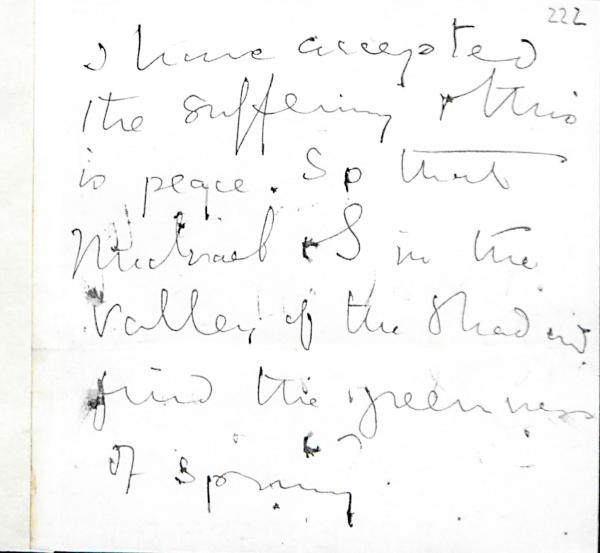 222
I have accepted
the suffering & this
is peace. So that
Michael & I in the
valley of the shadow
find the greenness
of spring